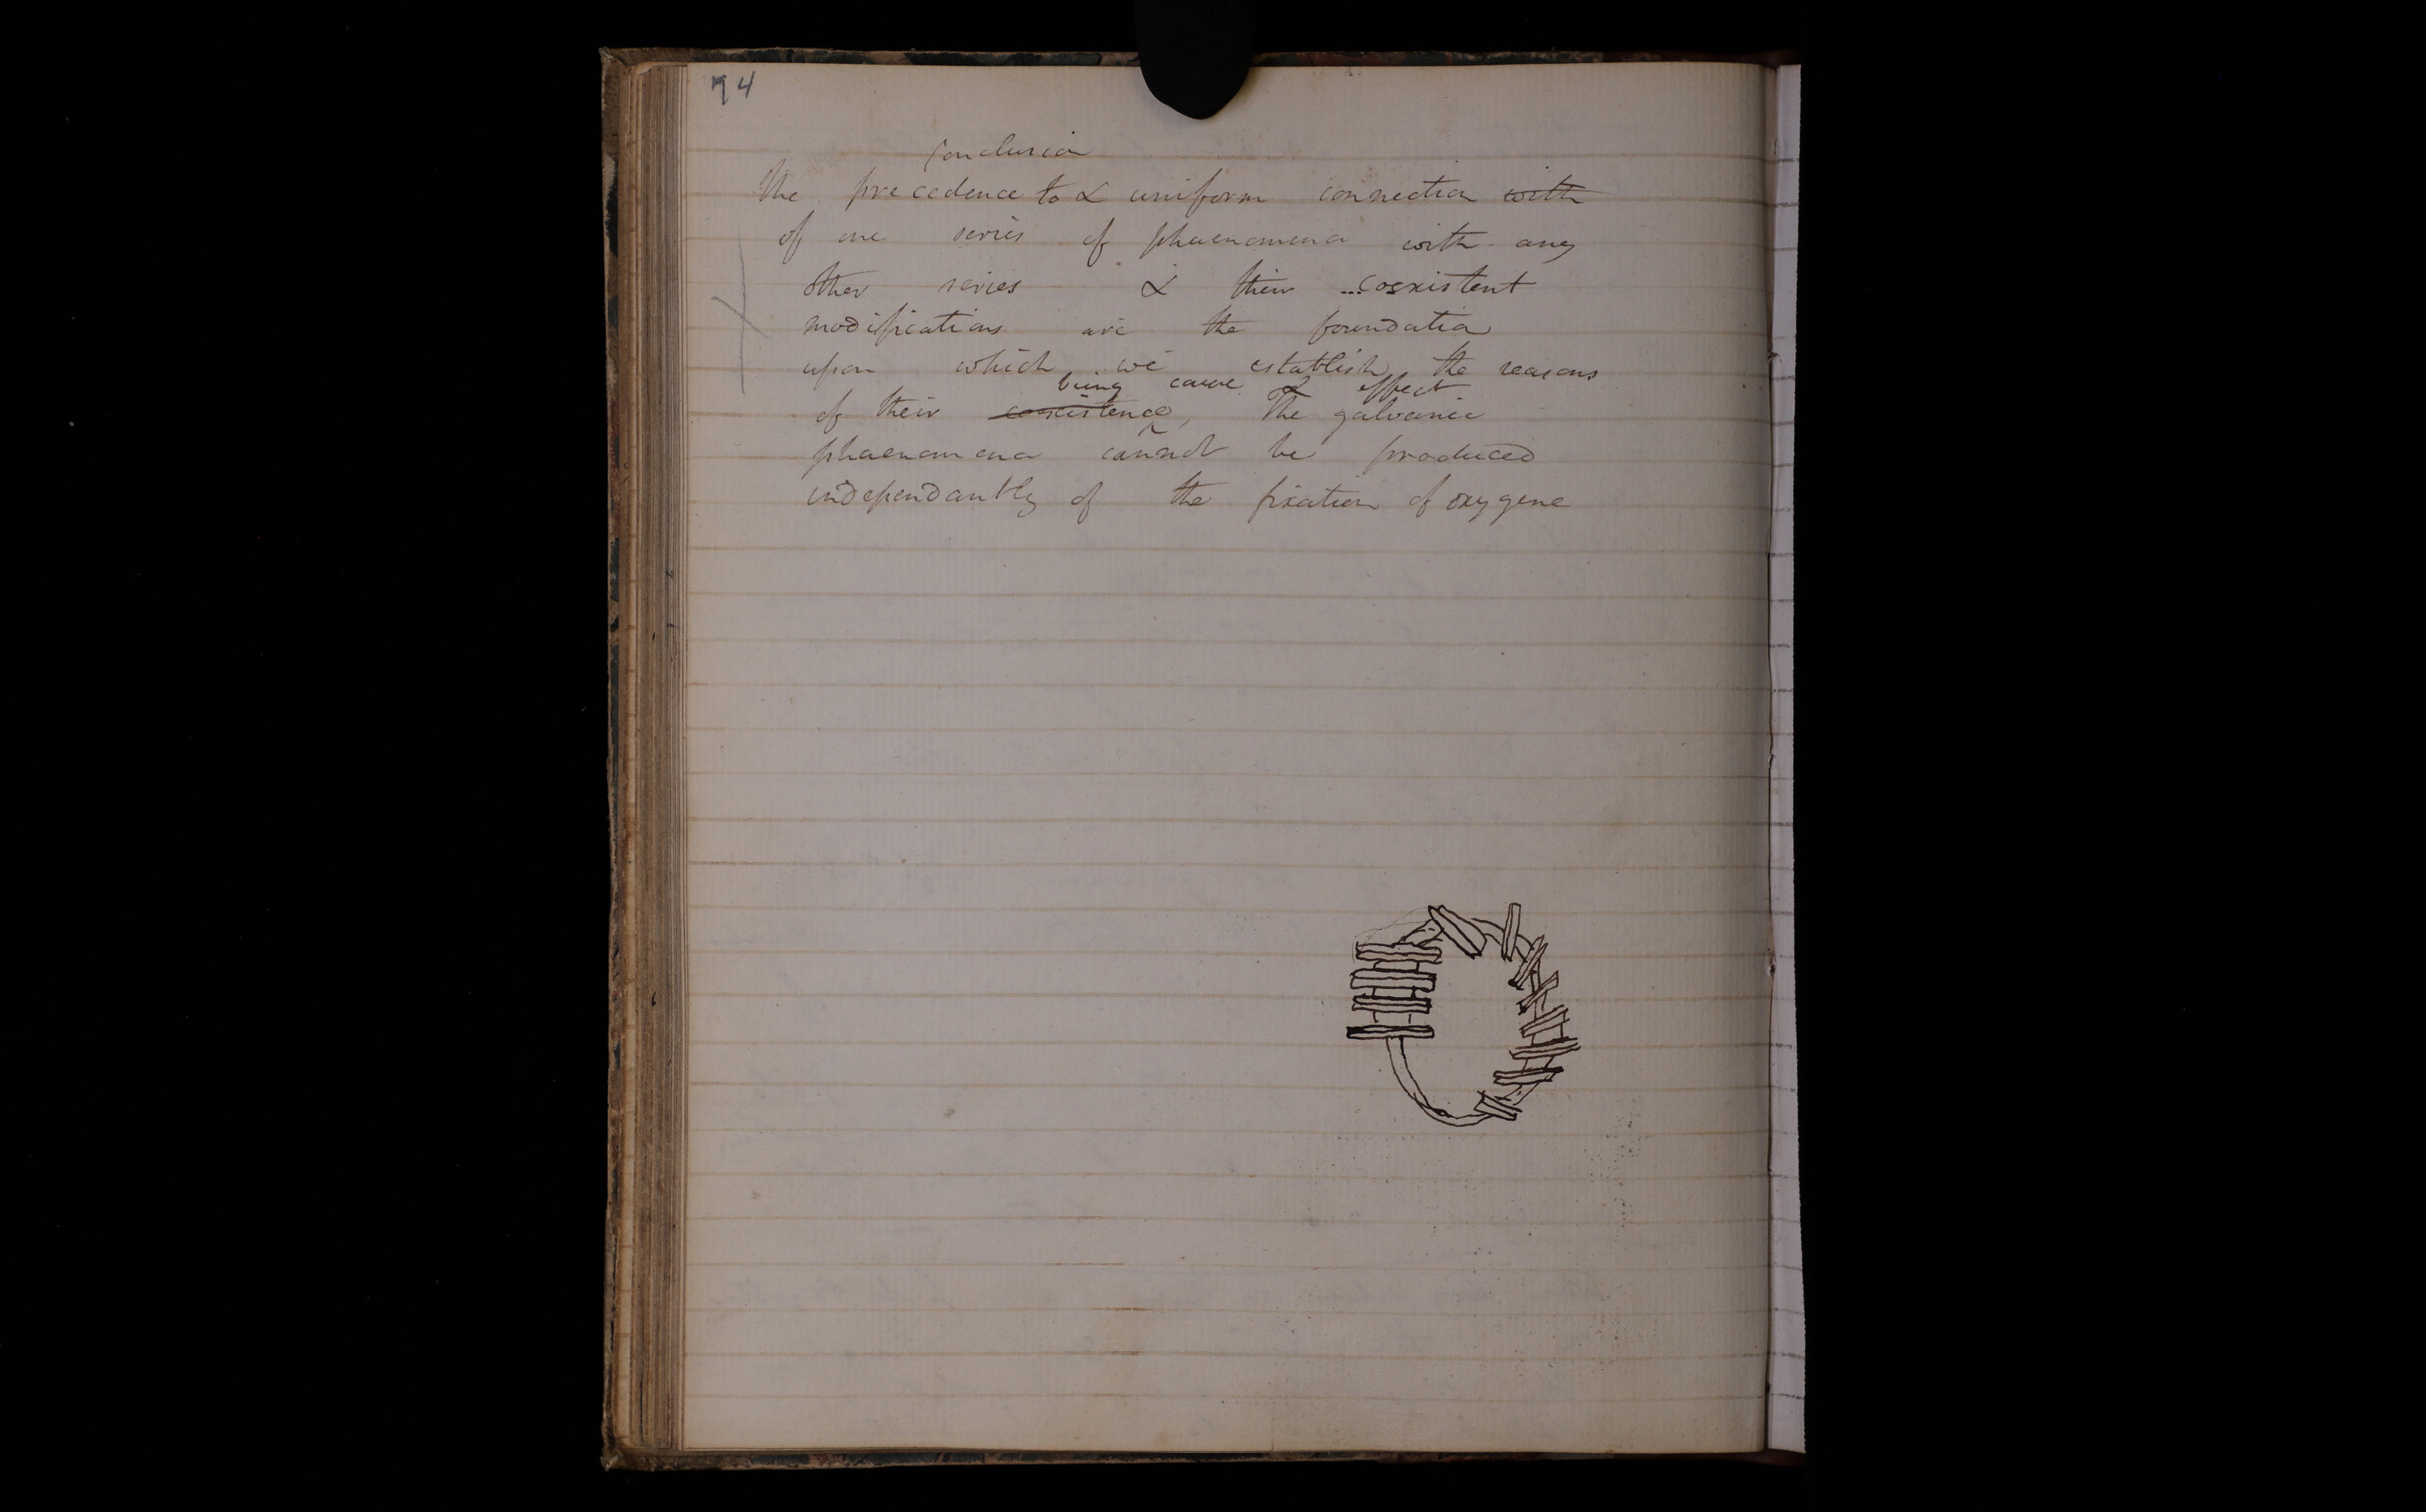 74
Conclusion
The precedence to & uniform connection with
of one series of phaenomena with any
other series & their coexistent
modifications are the foundation
upon which we establish the reasons
being cause & effect
of their coexistence, The galvanic
phaenomena cannot be produced
independantly of the fixation of oxygene